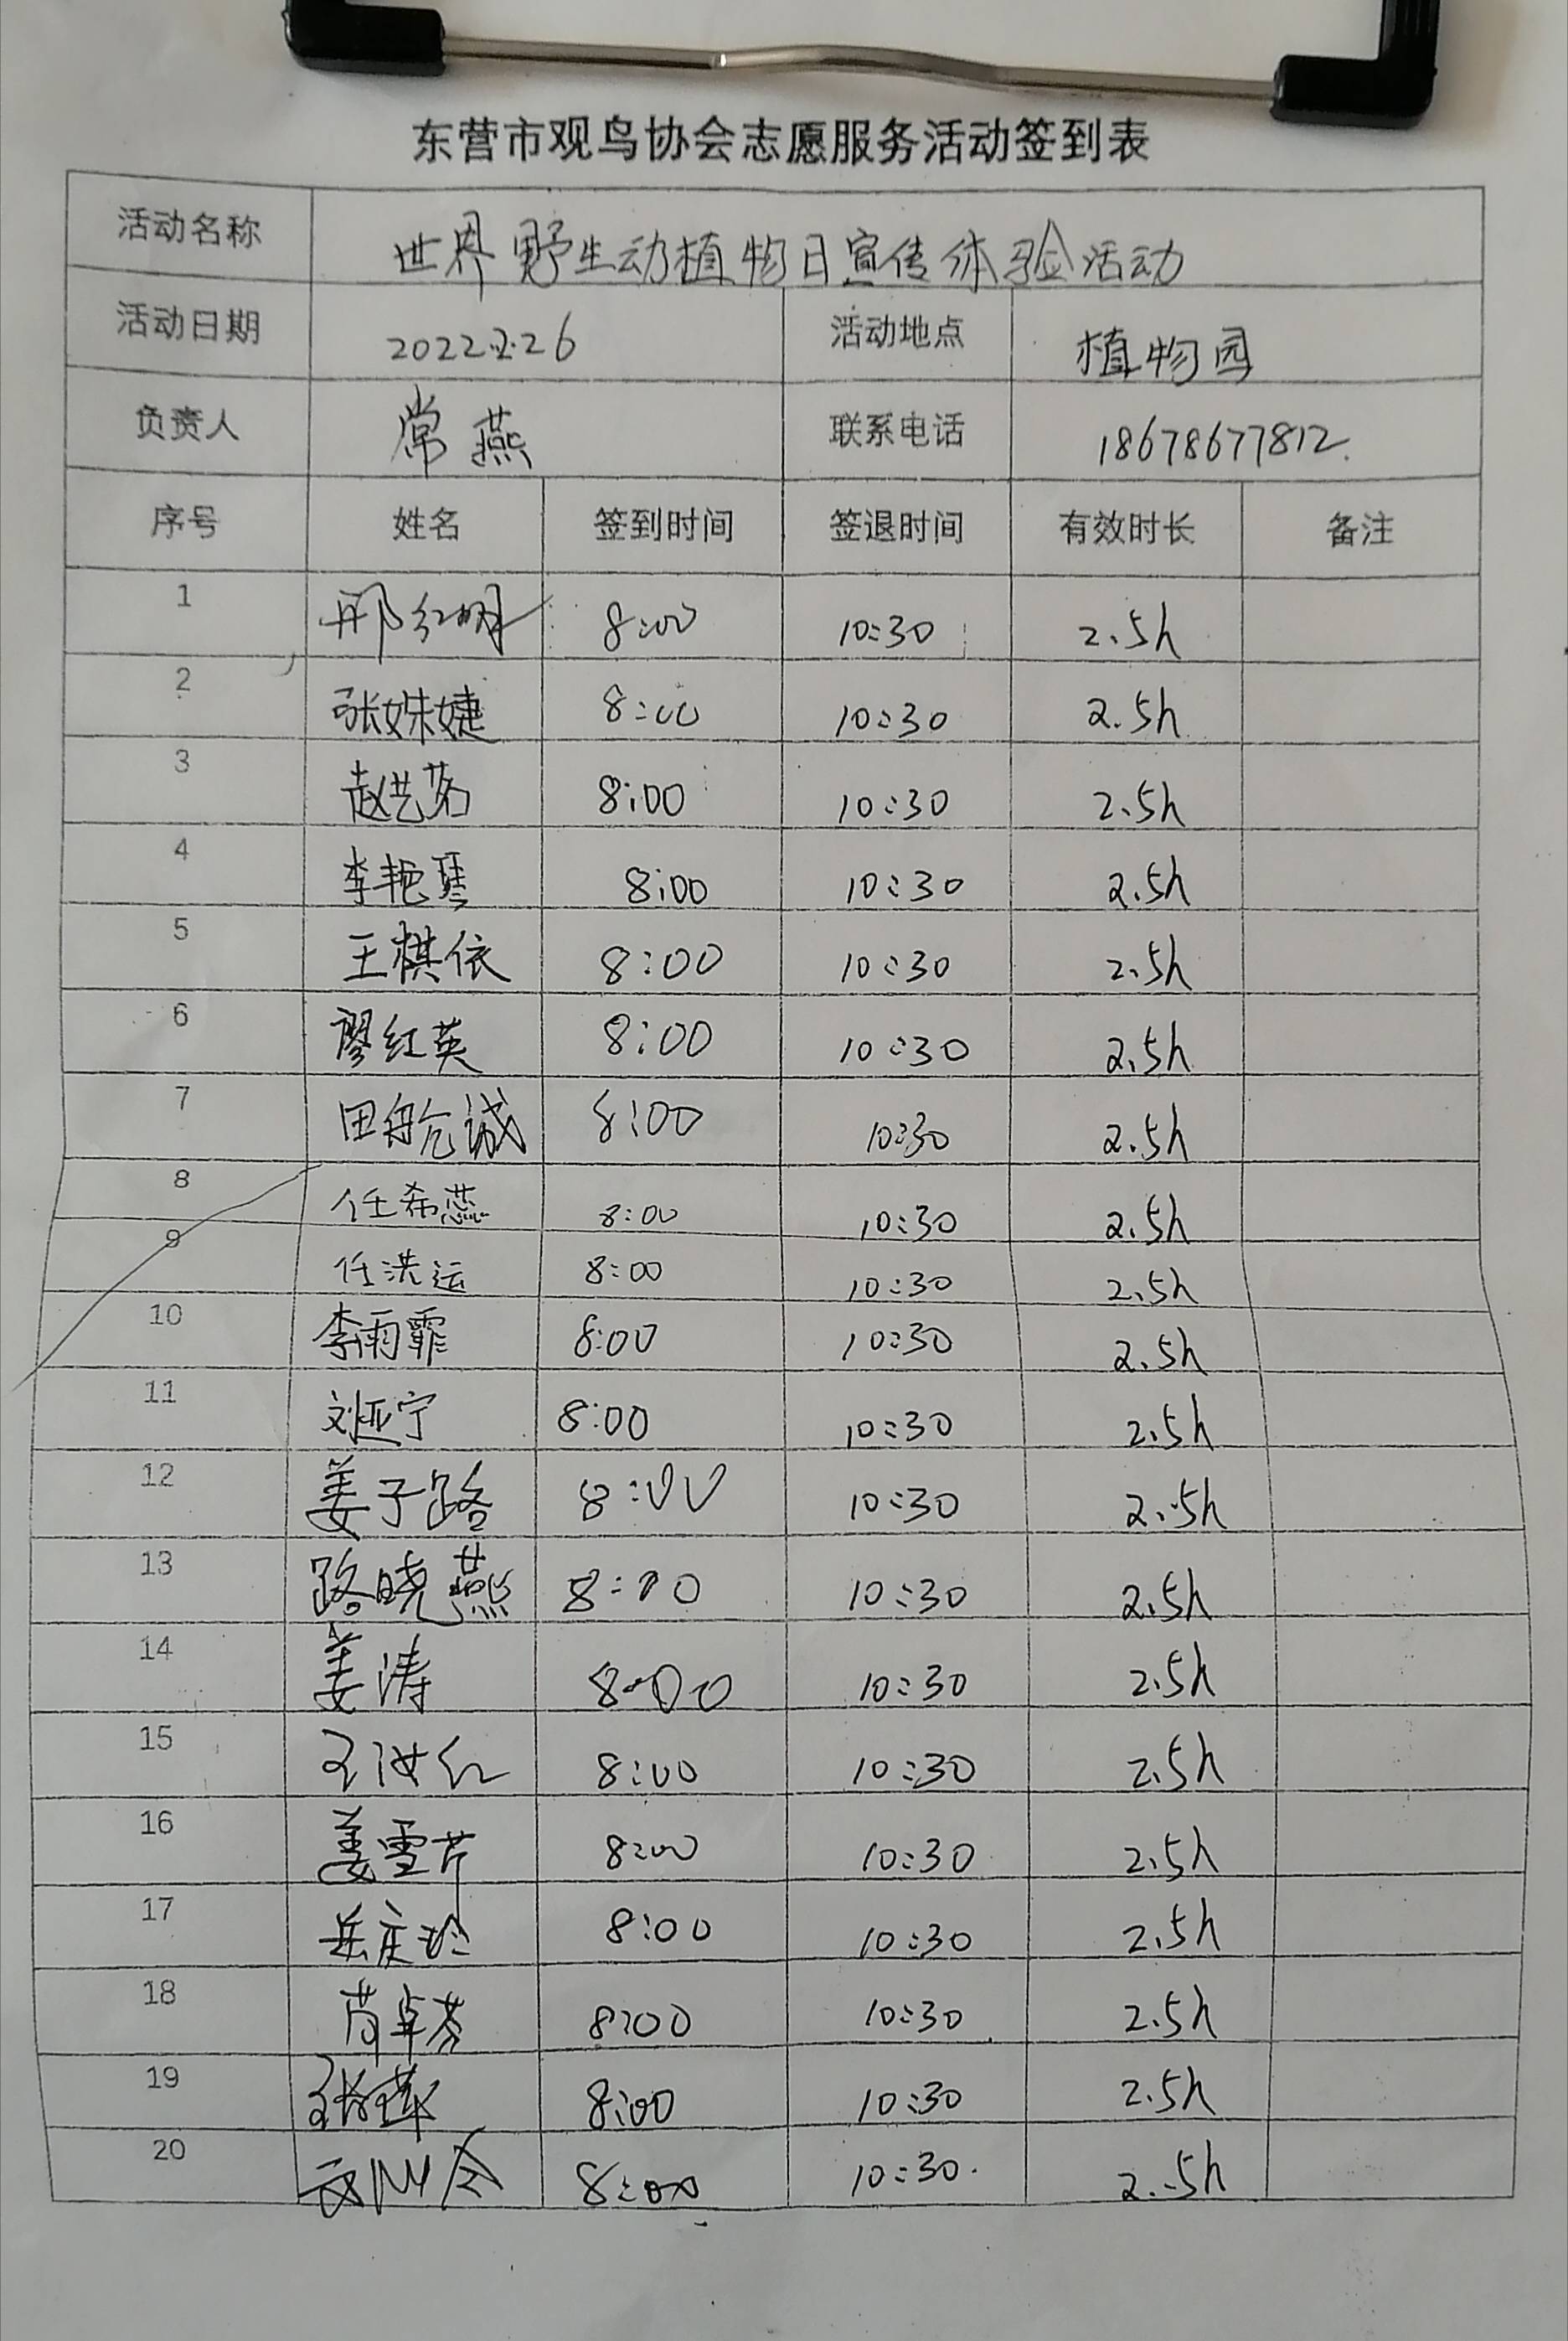 东营市观鸟协会志愿服务活动签到表
活动名称 世界野生动植物日宣传体验活动
活动日期 2022.2.26 活动地点 植物园
负责人 常燕 联系电话 18678677812.
序号 姓名 签到时间 签退时间 有效时长 备注
1 邢红明 8:00 10:30 2.5h
2 张姝婕 8:00 10:30 2.5h
3 赵艺茗 8:00 10:30 2.5h
4 李艳琴 8:00 10:30 2.5h
5 王棋依 8:00 10:30 2.5h
6 廖红英 8:00 10:30 2.5h
7 田航诚 8:00 10:30 2.5h
8 任希蕊 8:00 10:30 2.5h
9 任洪运 8:00 10:30 2.5h
10 李雨霏 8:00 10:30 2.5h
11 刘亚宁 8:00 10:30 2.5h
12 姜子路 8:00 10:30 2.5h
13 路晓燕 8:00 10:30 2.5h
14 姜涛 8:00 10:30 2.5h
15 王汝红 8:00 10:30 2.5h
16 姜雪芹 8:00 10:30 2.5h
17 岳庆玲 8:00 10:30 2.5h
18 芮卓芬 8:00 10:30 2.5h
19 8:00 10:30 2.5h
20 8:00 10:30. 2.5h